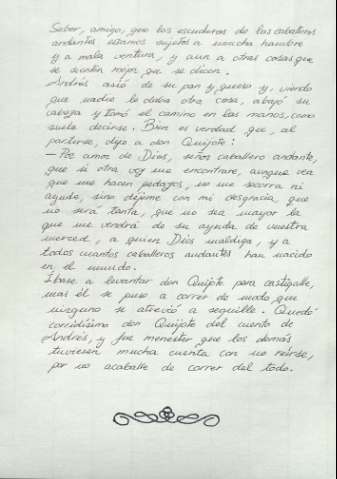 Saber, amigo, que los escuderos de los caballeros
andantes estamos sujetos a mucha hambre
y a mala ventura, y aun a otras cosas que
se sienten mejor que se dicen.
Andrés asió de su pan y queso y, viendo
que nadie le daba otra cosa, abajó su
cabeza y tomó el camino en las manos, como
suele decirse. Bien es verdad que, al
partirse, dijo a don Quijote:
—Por amor de Dios, señor caballero andante,
que si otra vez me encontrare, aunque vea
que me hacen pedazos, no me socorra ni
ayude, sino déjeme con mi desgracia, que
no será tanta, que no sea mayor la
que me vendrá de su ayuda de vuestra
merced, a quien Dios maldiga, y a
todos cuantos caballeros andantes han nacido
en el mundo.
Íbase a levantar don Quijote para castigalle,
mas él se puso a correr de modo que
ninguno se atrevió a seguille. Quedó
corridísimo don Quijote del cuento de
Andrés, y fue menester que los demás
tuviesen mucha cuenta con no reírse,
por no acaballe de correr del todo.